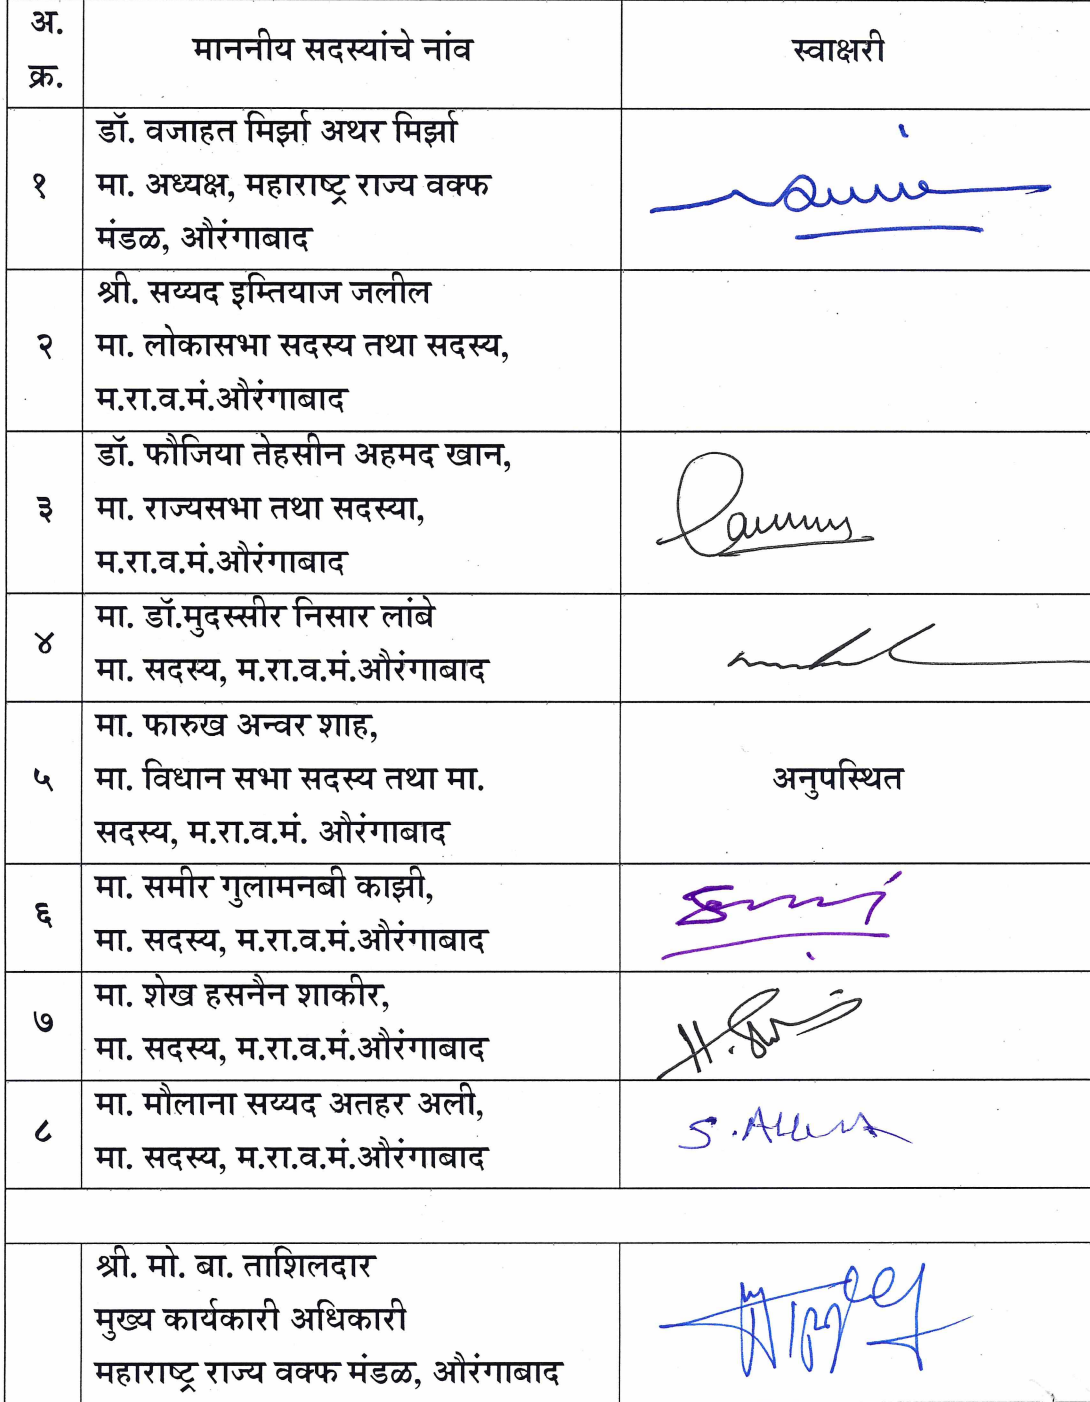 अ.
क्र.
माननीय सदस्यांचे नांव
स्वाक्षरी
१
डॉ. वजाहत मिर्झा अथर मिर्झा
मा. अध्यक्ष, महाराष्ट्र राज्य वक्फ
मंडळ, औरंगाबाद
२
श्री. सय्यद इम्तियाज जलील
मा. लोकासभा सदस्य तथा सदस्य,
म.रा.व.मं.औरंगाबाद
३
डॉ. फौजिया तेहसीन अहमद खान,
मा. राज्यसभा तथा सदस्या,
म.रा.व.मं.औरंगाबाद
४
मा. डॉ.मुदस्सीर निसार लांबे
मा. सदस्य, म.रा.व.मं.औरंगाबाद
५
मा. फारुख अन्वर शाह,
मा. विधान सभा सदस्य तथा मा.
सदस्य, म.रा.व.मं. औरंगाबाद
अनुपस्थित
६
मा. समीर गुलामनबी काझी,
मा. सदस्य, म.रा.व.मं.औरंगाबाद
७
मा. शेख हसनैन शाकीर,
मा. सदस्य, म.रा.व.मं.औरंगाबाद
८
मा. मौलाना सय्यद अतहर अली,
मा. सदस्य, म.रा.व.मं.औरंगाबाद
श्री. मो. बा. ताशिलदार
मुख्य कार्यकारी अधिकारी
महाराष्ट्र राज्य वक्फ मंडळ, औरंगाबाद